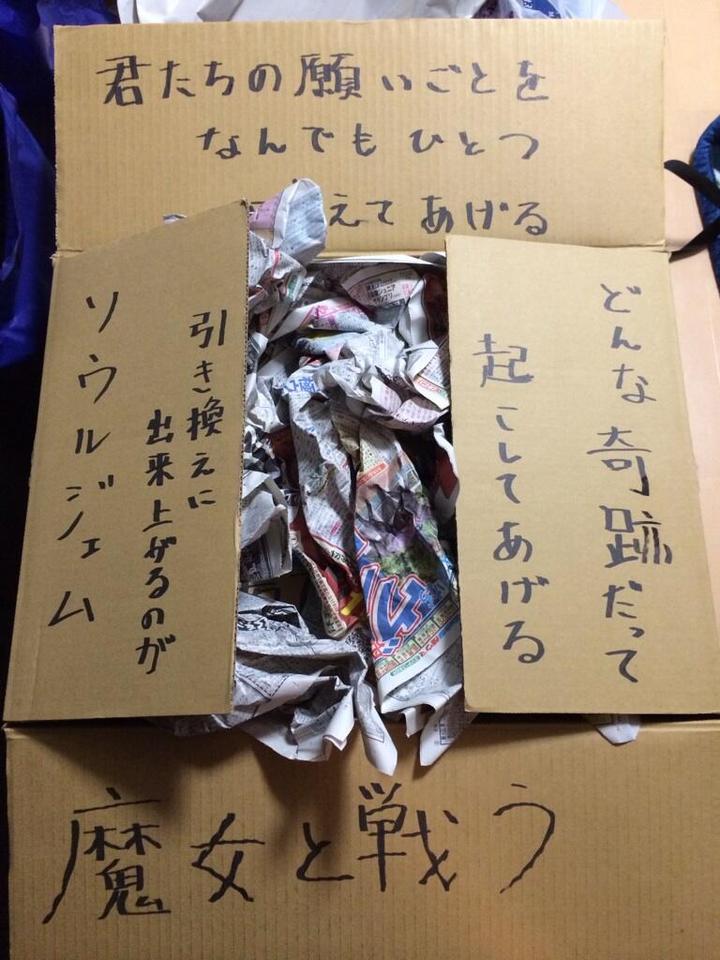 君たちの願いごとを
なんでもひとつ
えてあげる
どんな奇跡だって
起こしてあげる
引き換えに
出来上がるのが
ソウルジェム
魔女と戦う